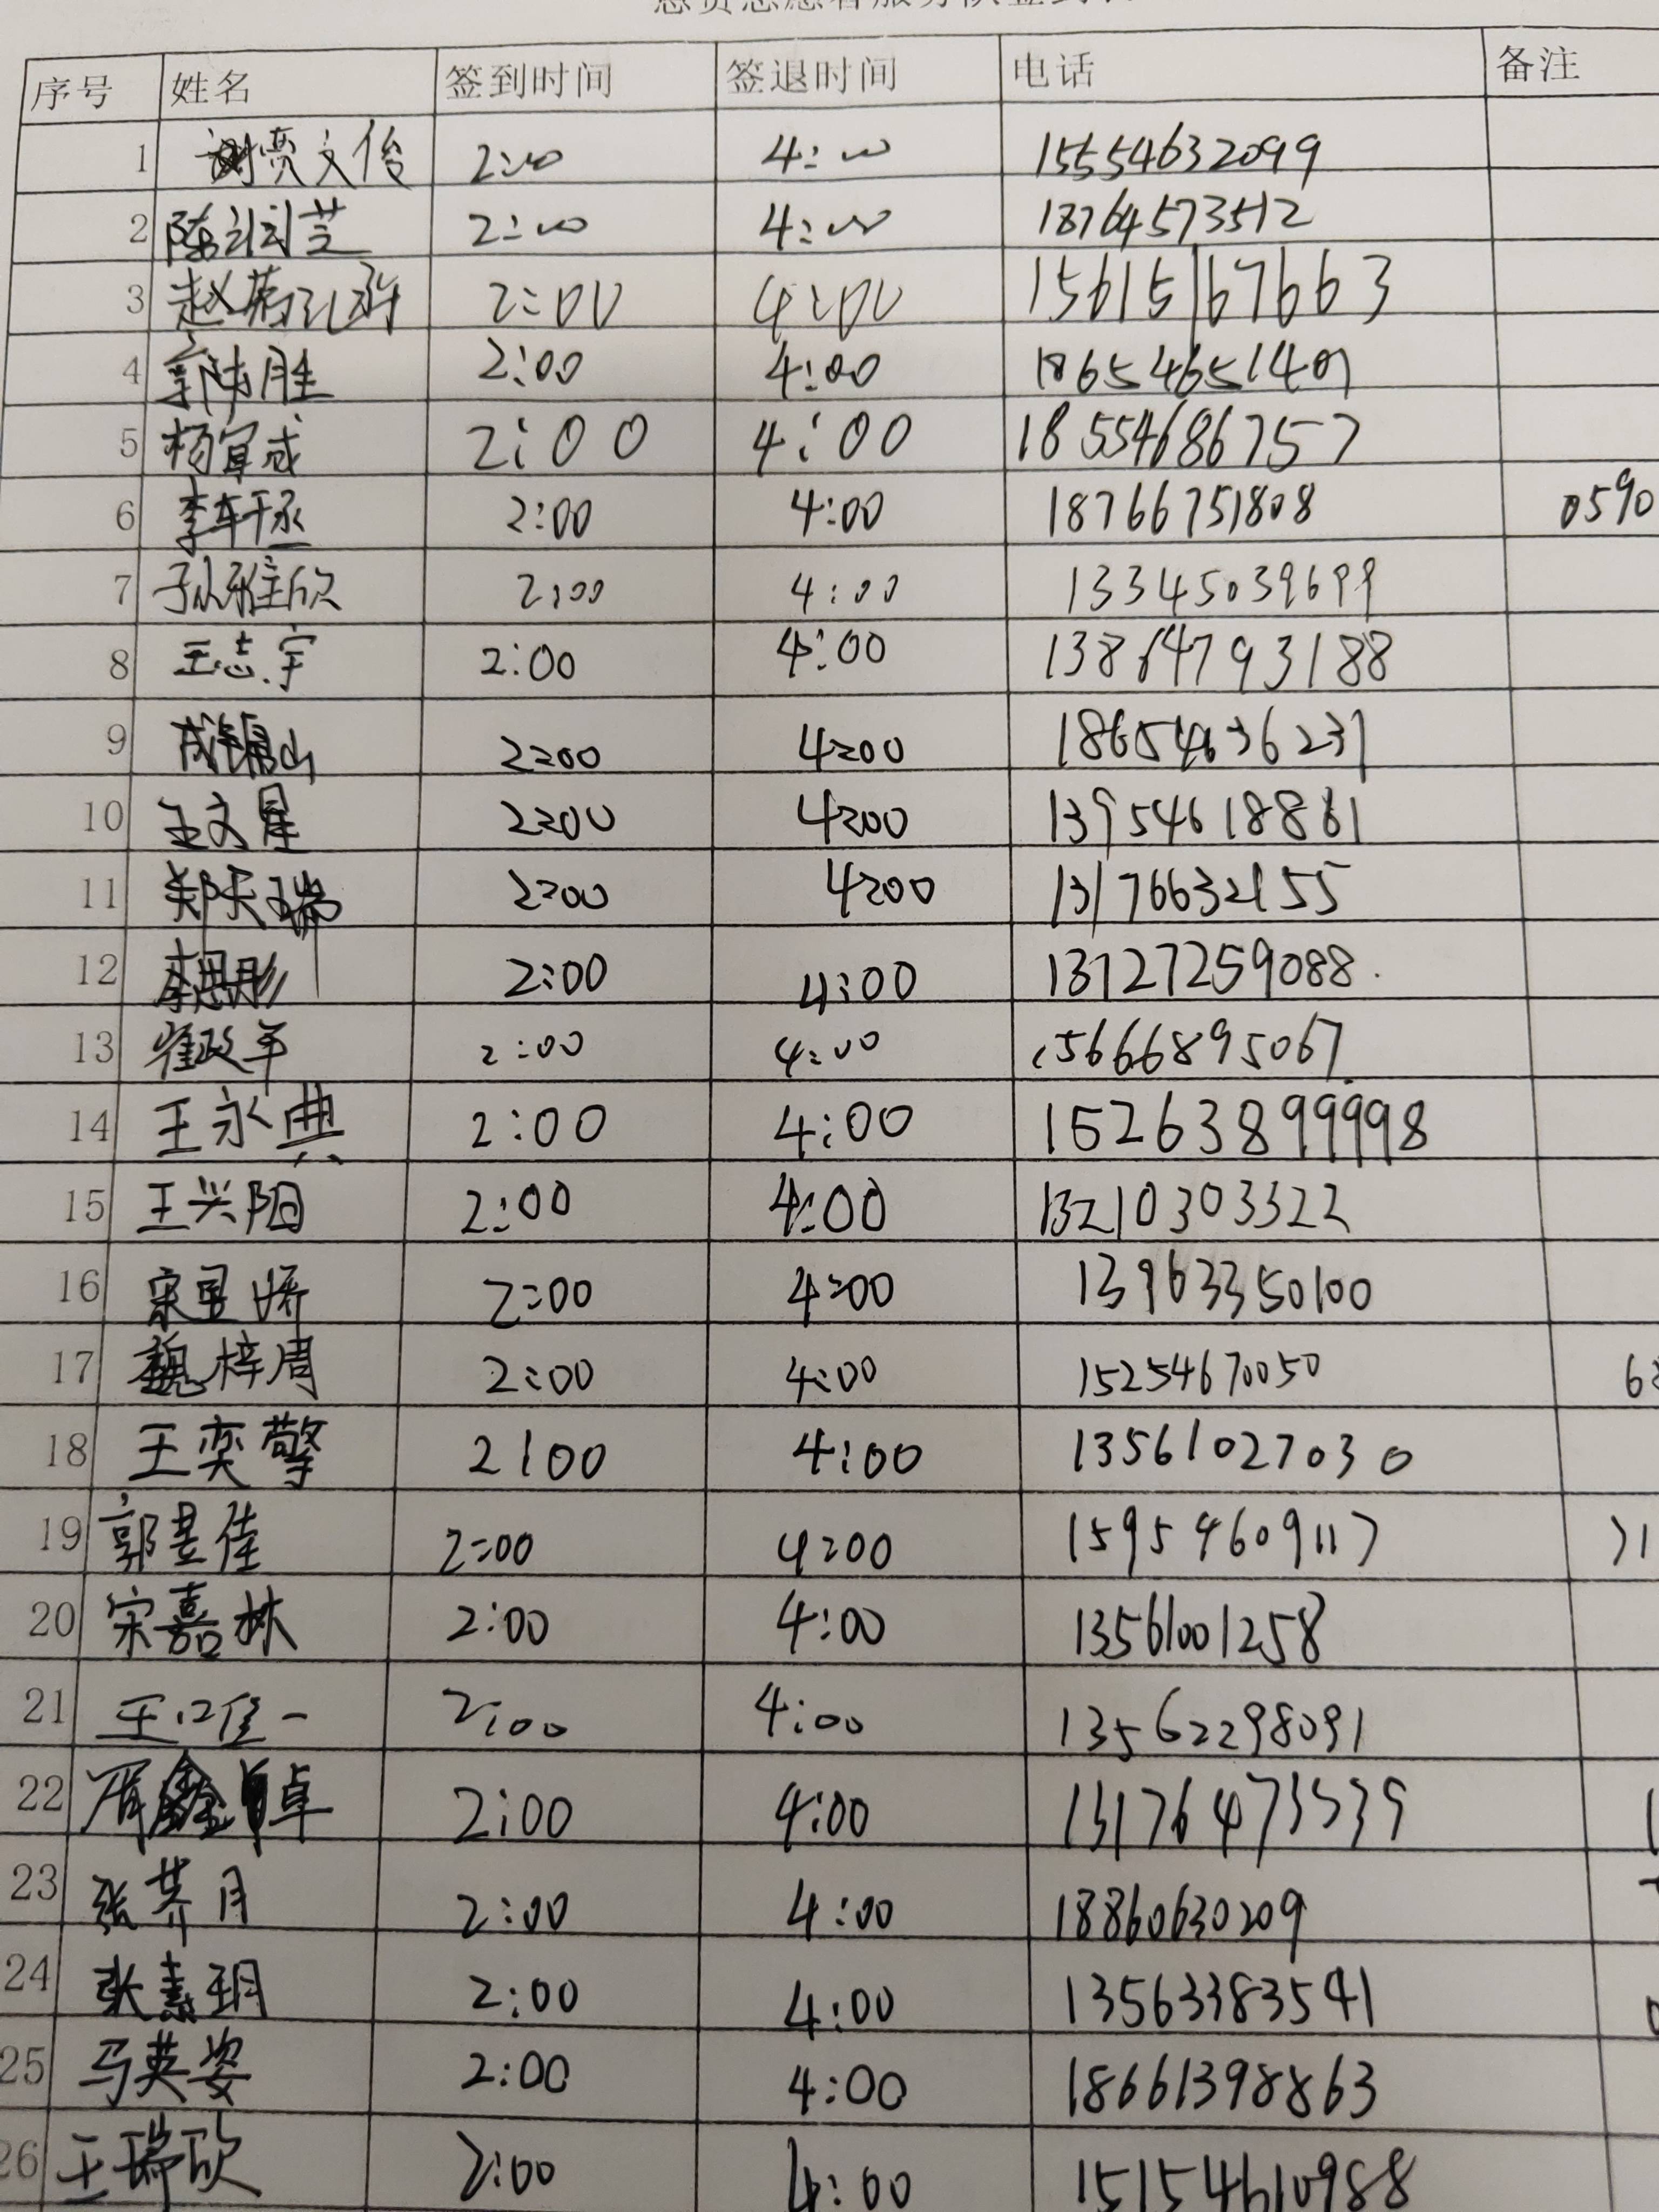 序号 姓名 签到时间 签退时间 电话 备注
1 贾文俊 2:00 4:00 15554632099
2 陈润芝 2:00 4:00 18764573512
3 赵 2:00 4:00 15615167663
4 郭沛胜 2:00 4:00 18654651401
5 杨宜成 2:00 4:00 18554686757
6 李轩丞 2:00 4:00 18766751808 0590
7 孙雅欣 2:00 4:00 13345039699
8 王志宇 2:00 4:00 13864793188
9 2:00 4:00 18654636231
10 王文星 2:00 4:00 13954618861
11 郑天瑞 2:00 4:00 13176632155
12 李思彤 2:00 4:00 13727259088
13 崔政平 2:00 4:00 15666895067
14 王永典 2:00 4:00 15263899998
15 王兴阳 2:00 4:00 13210303322
16 宋昱娇 2:00 4:00 13963350100
17 魏梓周 2:00 4:00 15254670050
18 王奕擎 2:00 4:00 13561027030
19 郭昱佳 2:00 4:00 15954609117 71
20 宋嘉林 2:00 4:00 13561001258
21 王唯一 2:00 4:00 13562298091
22 2:00 4:00 13176473539
23 张芥月 2:00 4:00 18860630209
24 张熹玥 2:00 4:00 13563383541
25 马英姿 2:00 4:00 18661398863
26 王瑞欣 2:00 4:00 15154610988